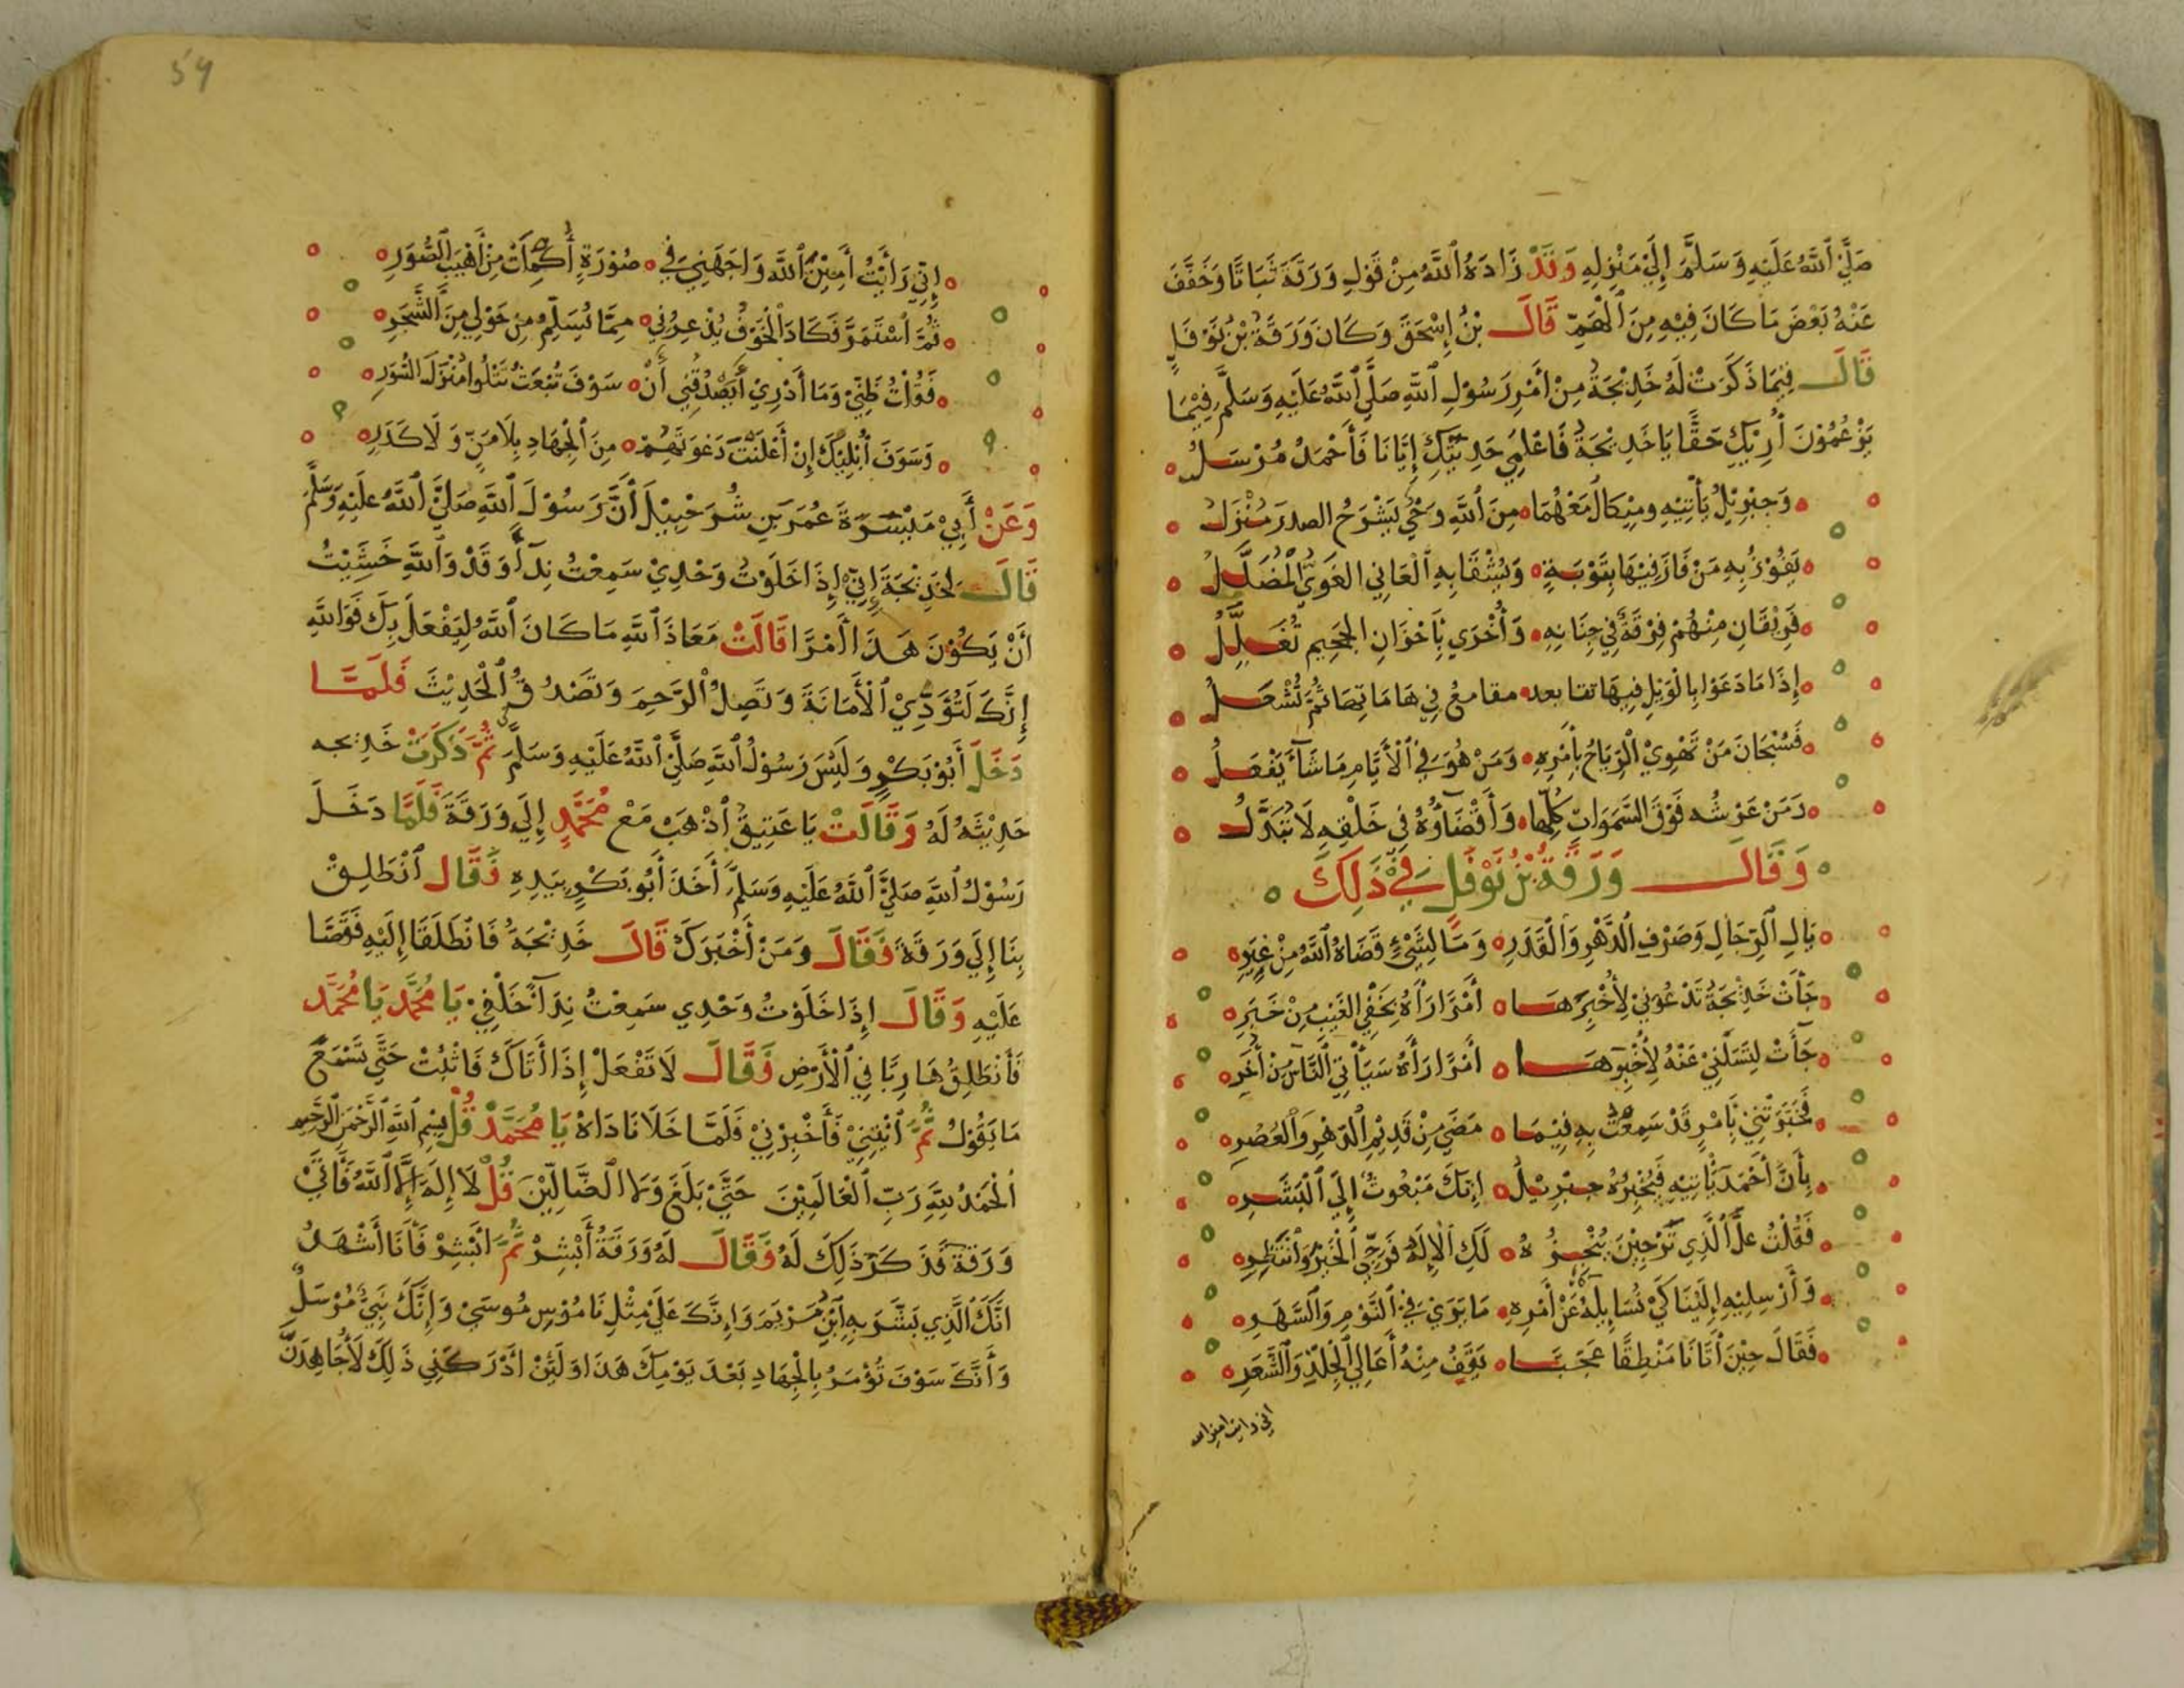 صَلَّى ٱللَّهُ عَلَيْهِ وَسَلَّمَ إِلَيْ مَنْزِلِهِ وَقَدْ زَادَهُ ٱللَّهُ مِنْ قَوْلِ وَرَقَةَ ثَبَاتًا وَخَفَّفَ
عَنْهُ بَعْضَ مَا كَانَ فِيْهِ مِنَ ٱلْهَمِّ قَالَ بْنُ إِسْحَقَ وَكَانَ وَرَقَةُ بْنُ نَوْفَلٍ
قَالَ فِيمَا ذَكَرَتْ لَهُ خَدِيْجَةُ مِنْ أَمْرِ رَسُوْلِ ٱللَّهِ صَلَّى ٱللَّهُ عَلَيْهِ وَسَلَّمَ فِيْمَا
يَزْعُمُوْنَ
إِنْ يَكُ حَقًّا يَا خَدِيْجَةُ فَاعْلَمِي حَدِيْثُكِ إِيَّانَا فَأَحْمَدُ مُرْسَلُ
وَجِبْرِيْلُ يَأْتِيْهِ وَمِيْكَالُ مَعْهُمَا مِنَ ٱللَّهِ وَحْيٌ يَشْرَحُ الصدرَ مُنْزَلُ
يَفُوْزُ بِهِ مَنْ فَازَ فِيْهَا بِتَوْبَةٍ وَيَشْقَا بِهِ ٱلْعَانِي الغَوِيُّ الْمُضَلَّلُ
فَرِيْقَانِ مِنْهُمْ فِرْقَةٌ فِي جِنَانِهِ وَأُخْرَي بِأَخْوَانِ الجَحِيمِ تُغَلَّلُ
إِذَا مَا دَعَوْا بِالْوَيْلِ فِيهَا تتابعت مقامعُ فِي هَامَاتِهَا ثُمَّ تُشْعَلُ
فَسُبْحَانَ مَنْ تَهْوِيْ الْرِّيَاحُ بِأَمْرِهِ وَمَنْ هُوَ فِي ٱلْأَيَّامِ مَا شَآءَ يَفْعَلُ
وَمَنْ عَرْشُه فَوْقَ السَّمَوَاتِ كُلِّهَا وَأَقْضَاؤُهُ فِي خَلْقِهِ لَا تُبَدَّلُ
وَقَالَ وَرَقَةُ بْنُ نَوْفَلِ فِيْ ذَلِكَ
يَالِ ٱلرِّجَالِ وَصَرْفِ ٱلدَّهْرِ وَٱلْقَدَرِ وَمَا لِشَيْءٍ قَضَاهُ ٱللَّهُ مِنْ غِيَرِ
جَأَتْ خَدِيْجَةُ تَدْعُوْنِيْ لِأُخْبِرَهَا أَمْرًا رَأَهُ يَخْفِي الغَيْبِ مِنْ خَبَرِ
جَآَتْ لِتَسْئَلَنِيْ عَنْهُ لِأُخْبِرَهَا أَمْرًا رَأَهُ سَيَأْتِي ٱلنَّاسَ مِنْ أُخَرِ
فَخَبَّرَتْنِيْ بِأَمْرٍ قَدْ سَمِعْتُ بِهِ فِيْمَا مَضَي مِنْ قَدِيْمِ ٱلدَّهْرِ وَٱلْعُصُرِ
بِأَنَّ أَحْمَدَ يَأْتِيْهِ فَيُخْبِرُهُ جِبْرِيْلُ إِنَّكَ مَبْعُوثٌ إِلَي ٱلْبَشَرِ
فَقُلْتُ عَلَّ ٱلَّذِي تَرْجِيْنَ يُنْجِزُهُ لَكِ ٱلْإِلَهُ فَرَجِّي ٱلْخَيْرَ وَٱنْتَظِرِ
وَأَرْسِلِيْهِ إِلَيْنَا كَيْ نُسَايِلَهُ عَنْ أَمْرِهِ مَا يَرَيْ فِيْ ٱلنَّوْمِ وَٱلسَّهَرِ
فَقَالَ حِيْنَ أَتَانَا مَنْطِقًا عَجَبًا يَقِفُ مِنْهُ أَعَالِي ٱلْجِلْدِ وَٱلشَّعَرِ
اني رايت امين الله
59
إِنِّي رَأَيْتُ أَمِيْنَ ٱللَّهِ وَاجَهَنِيْ فِيْ صُوْرَةٍ أُكْمِلَتْ مِنْ أَهْيَبِ ٱلصُّوَرِ
ثُمَّ ٱسْتَمَرَّ فَكَادَ ٱلْخَوْفُ يُذْعِرُنِي مِمَّا يُسَلِّمُ مِنْ حَوْلِي مِنَ ٱلشَّجَرِ
فَقُلْتُ ظَنِّيْ وَمَا أَدْرِيْ أَيَصْدُقُنِي أَنْ سَوْفَ تُبْعَثُ تَتْلُوا مُنْزَلَ السُّوَرِ
وَسَوَفَ أُبْلِيْكَ إِنْ أَعْلَنْتَ دَعْوَتَهُمْ مِنَ ٱلْجِهَادِ بِلَا مَنٍّ وَلَا كَدَرِ
وَعَنْ أَبِيْ مَيْسَرَةَ عُمَرَ بْنِ شُرَحْبِيْلَ أَنَّ رَسُوْلَ ٱللَّهِ صَلَّى ٱللَّهُ عَلَيْهِ وَسَلَّمَ
قَالَ لِخَدِيْجَةَ إِنِّيْ إِذَا خَلَوْتُ وَحْدِيْ سَمِعْتُ نِدَآءً وَقَدْ وَٱللَّهِ خَشِيْتُ
أَنْ يَكُوْنَ هَذَ أَمْرًا قَالَتْ مَعَاذَ ٱللَّهِ مَا كَانَ ٱللَّهُ لِيَفْعَلَ بِكَ فَوَاللَّهِ
إِنَّكَ لَتُؤَدِّيْ ٱلْأَمَانَةَ وَتَصِلُ ٱلرَّحِمَ وَتَصْدُقُ ٱلْحَدِيْثَ فَلَمَّا
دَخَلَ أَبُوْ بَكْرٍ وَلَيْسَ رَسُوْلُ ٱللَّهِ صَلَّى ٱللَّهُ عَلَيْهِ وَسَلَّمَ ثُمَّ ذَكَرَتْ خَدِيجه
حَدِيْثَهُ لَهُ وَقَالَتْ يَا عَتِيقُ ٱذْهَبْ مَعْ مُحَمَّدٍ إِلَي وَرَقَةَ فَلَمَّا دَخَلَ
رَسُوْلُ ٱللَّهِ صَلَّى ٱللَّهُ عَلَيْهِ وَسَلَّمَ أَخَذَ أَبُو بَكْرٍ بِيَدِهِ فَقَالَ ٱنْطَلِقْ
بِنَا إِلَي وَرَقَةَ فَقَالَ وَمَنْ أَخْبَرَكَ قَالَ خَدِيْجَةُ فَانْطَلَقَا إِلَيْهِ فَقَصَّا
عَلَيْهِ وَقَالَ إِذَا خَلَوْتُ وَحْدِي سَمِعْتُ نِدَآءً خَلْفِيْ يَا مُحَمَّد يَا مُحَمَّد
فَأَنْطَلِقُ هَارِبًا فِي ٱلْأَرْضِ فَقَالَ لَا تَفْعَلْ إِذَا أَتَاكَ فَاثْبُتْ حَتَّي تَسْمَعَ
مَا يَقُوْلُ ثُمَّ ٱئْتِنِيْ فَأَخْبِرْنِيْ فَلَمَّا خَلَا نَادَاهُ يَا مُحَمَّدْ قُلْ بِسْمِ ٱللَّهِ ٱلرَّحْمَنِ ٱلرَّحِيم
ٱلْحَمْدُ لِلَّهِ رَبِّ ٱلْعَالَمِيْنَ حَتَّيْ بَلَغَ وَلَا ٱلضَّالِّيْنَ قُلْ لَا إِلَهَ إِلَّا ٱللَّهُ فَأَتَيْ
وَرَقَةَ فَذَكَرَ ذَلِكَ لَهُ فَقَالَ لَهُ وَرَقَةُ أَبْشِرْ ثُمَّ ابْشِرْ فَأَنَا أَشْهَدُ
انَّكَ ٱلَّذِي بَشَّرَ بِهِ ٱبْنُ مَرْيَمَ وَإِنَّكَ عَلَيْ مِثْلِ نَامُوْسِ مُوسَيْ وَإِنَّكَ نَبِيٌّ مُرْسَلٌ
وَأَنَّكَ سَوْفَ تُؤْمَرُ بِالْجِهَادِ بَعْدَ يَوْمِكَ هَذَا وَلَئِنْ ادْرَكَنِي ذَلِكَ لَأُجَاهِدَنَّ